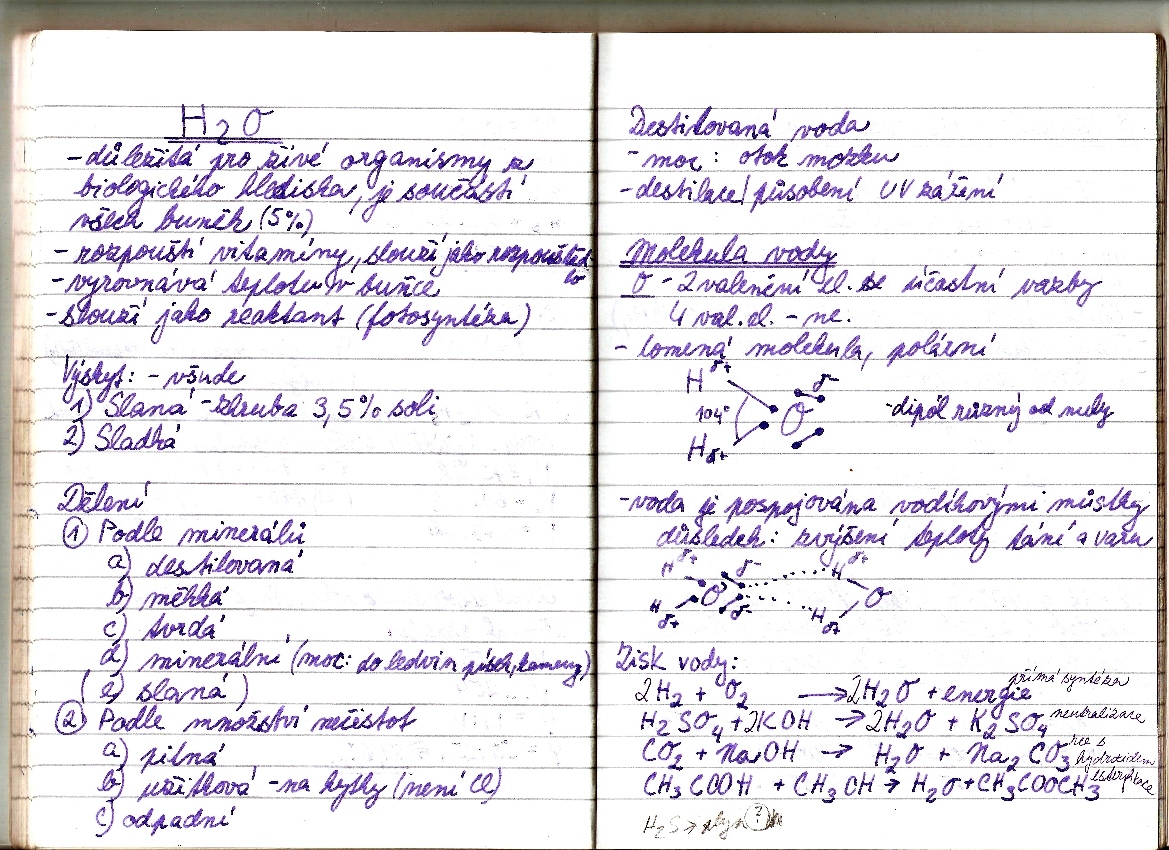 H2O
- důležitá pro živé organismy z
biologického hlediska, je součástí
všech buněk (5%)
- rozpouští vitamíny, slouží jako rozpouštěd-
lo
- vyrovnává teplotu v buňce
- slouží jako reaktant (fotosyntéza)
Výskyt: - všude
1) Slaná - zhruba 3,5% soli
2) Sladká
Dělení
① Podle minerálů
a) destilovaná
b) měkká
c) tvrdá
d) minerální (moc: do ledvin písek, kameny)
( e) slaná )
② Podle množství nečistot
a) pitná
b) užitková - na kytky (není Cl)
c) odpadní
Destilovaná voda
- moc: otok mozku
- destilace/působení UV záření
Molekula vody
O - 2 valenční el. se účastní vazby
4 val. el. - ne.
- lomená molekula, polární
H δ+ δ-
104° O - dipól různý od nuly
H δ+
- voda je pospojována vodíkovými můstky
důsledek: zvýšení teploty tání a varu
H δ+ δ- H δ+
O O
H δ+ δ- H δ+
Zisk vody:
2H2 + O2 → 2H2O + energie přímá syntéza
H2SO4 + 2KOH → 2H2O + K2SO4 neutralizace
CO2 + NaOH → H2O + Na2CO3 rce s hydroxidem
CH3COOH + CH3OH → H2O + CH3COOCH3 esterifikace
H2S → plyn ?